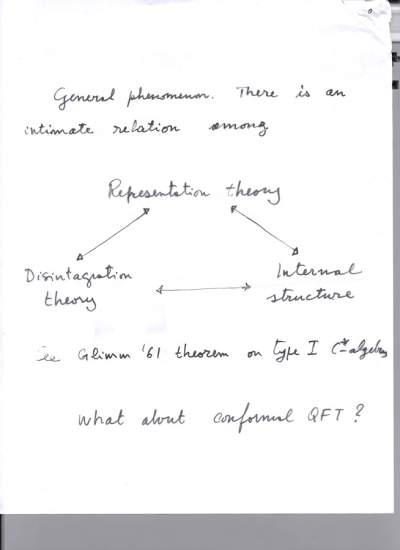 0
General phenomenon. There is an
intimate relation among
Representation theory
Disintagration
theory
Internal
structure
See Glimm '61 theorem on type I C*-algebras
What about conformal QFT ?